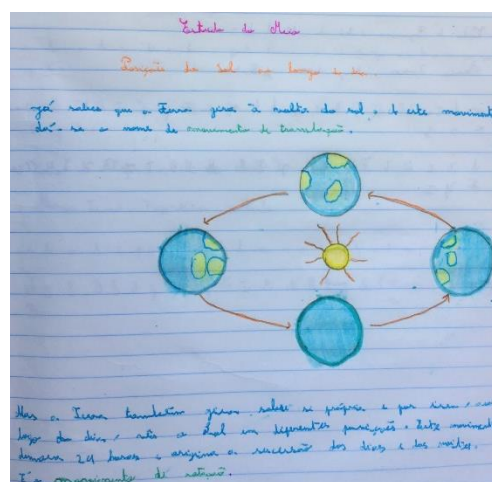 Estudo do Meio
Posição do Sol ao longo do dia.
Já sabes que a Terra gira à volta do sol. A este movimento
dá-se o nome de movimento de translação.
Mas a Terra também gira sobre si própria e por isso, ao
longo do dia, vês o Sol em diferentes posições. Este movimento
demora 24 horas e origina a sucessão dos dias e das noites.
É o movimento de rotação.